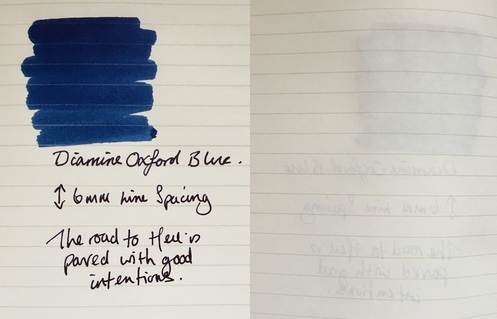 Diamine Oxford Blue.
↕ 6mm line Spacing
The road to Hell is
paved with good
intentions.